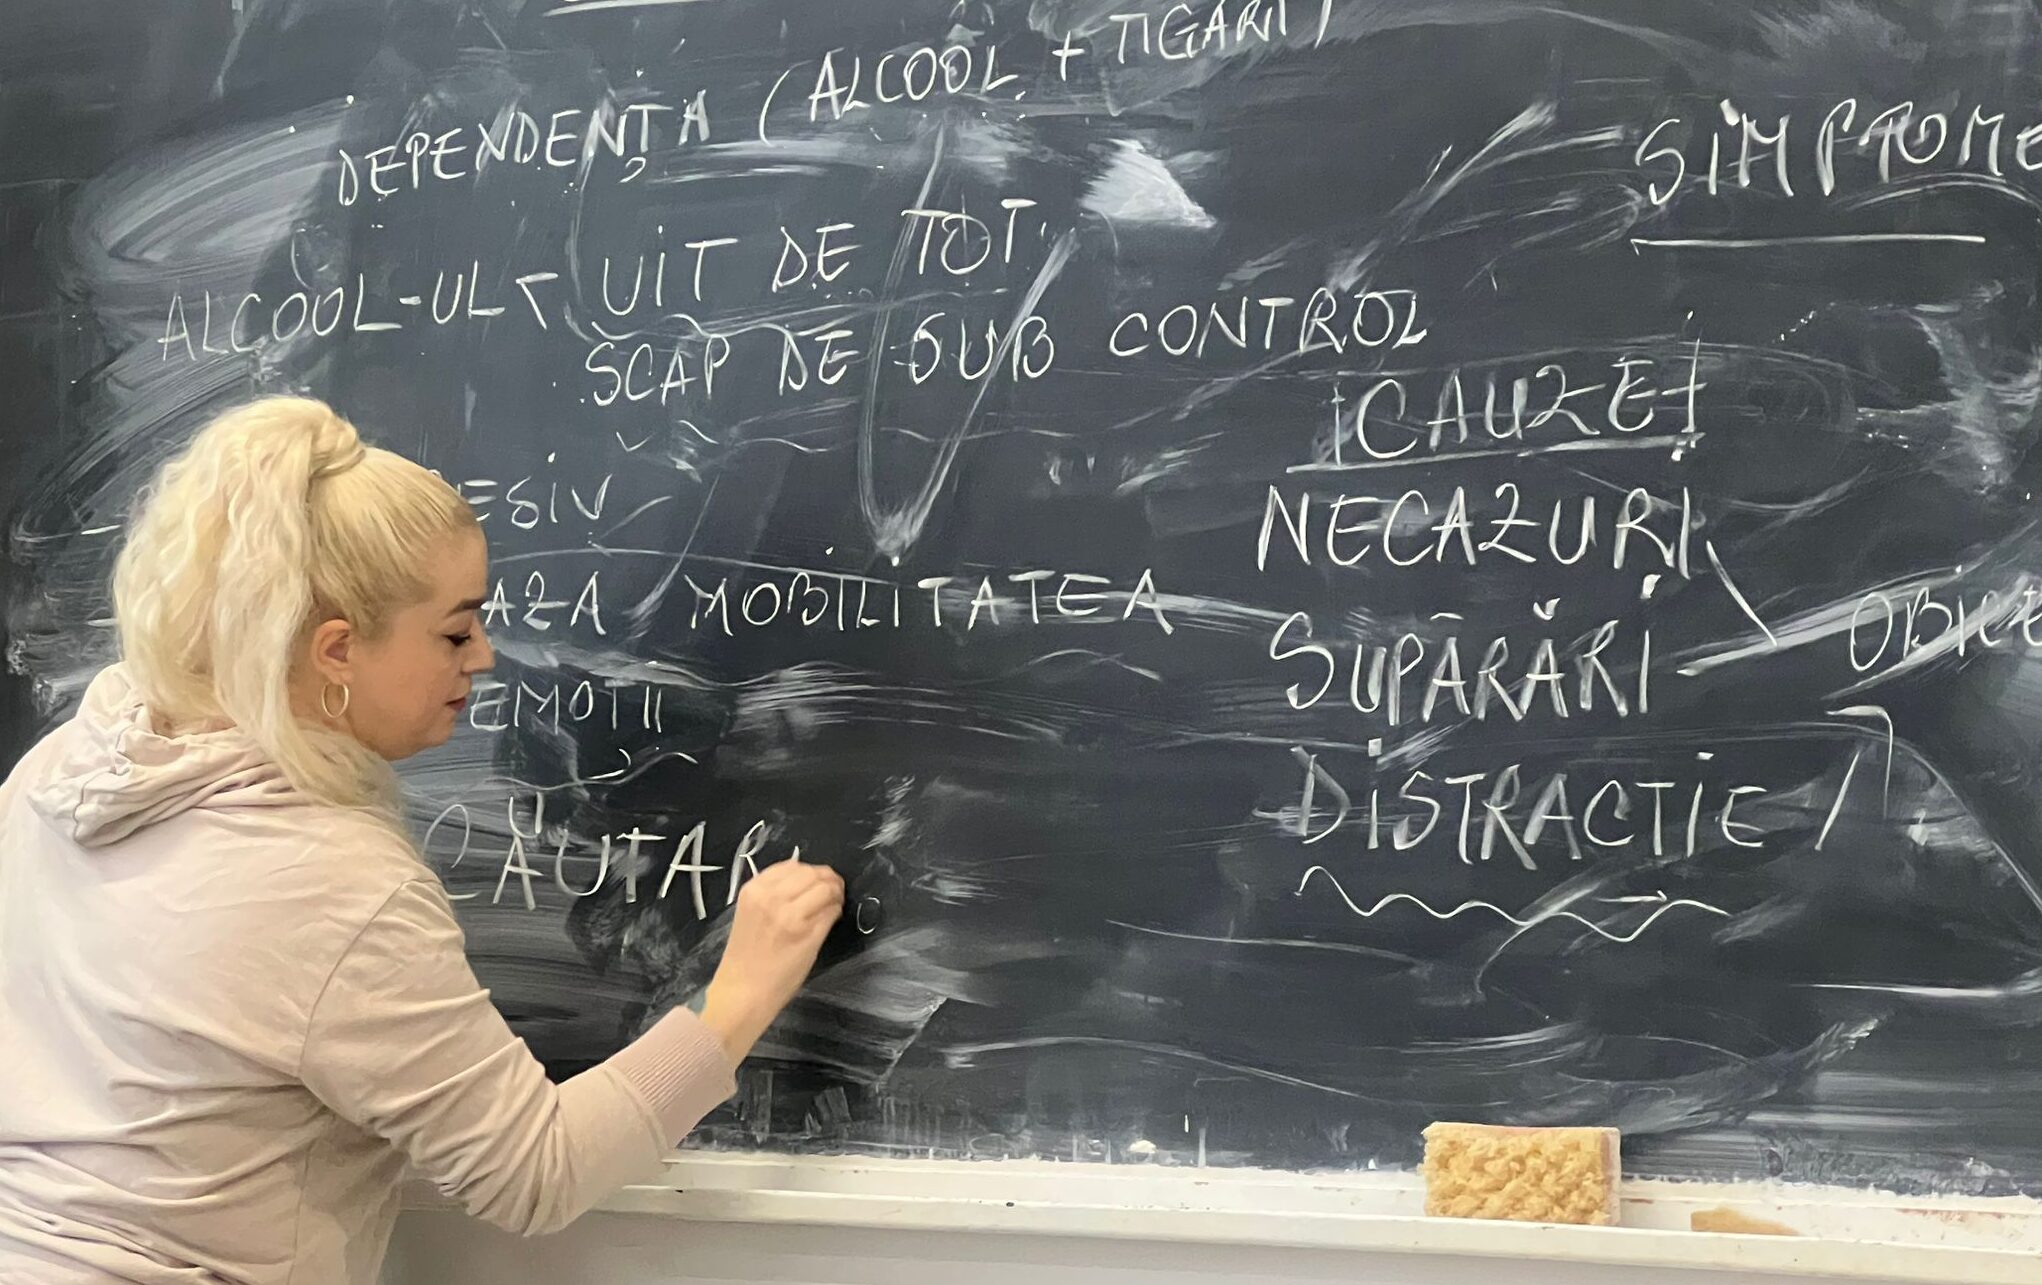 DEPENDENȚA (ALCOOL + TIGARII)
ALCOOL-UL UIT DE TOT
SCAP DE SUB CONTROL
ESIV
AZA MOBILITATEA
EMOȚII
CĂUTAR
SIMPTOME
CAUZE
NECAZURI
SUPĂRĂRI
DISTRACTIE
OBICE